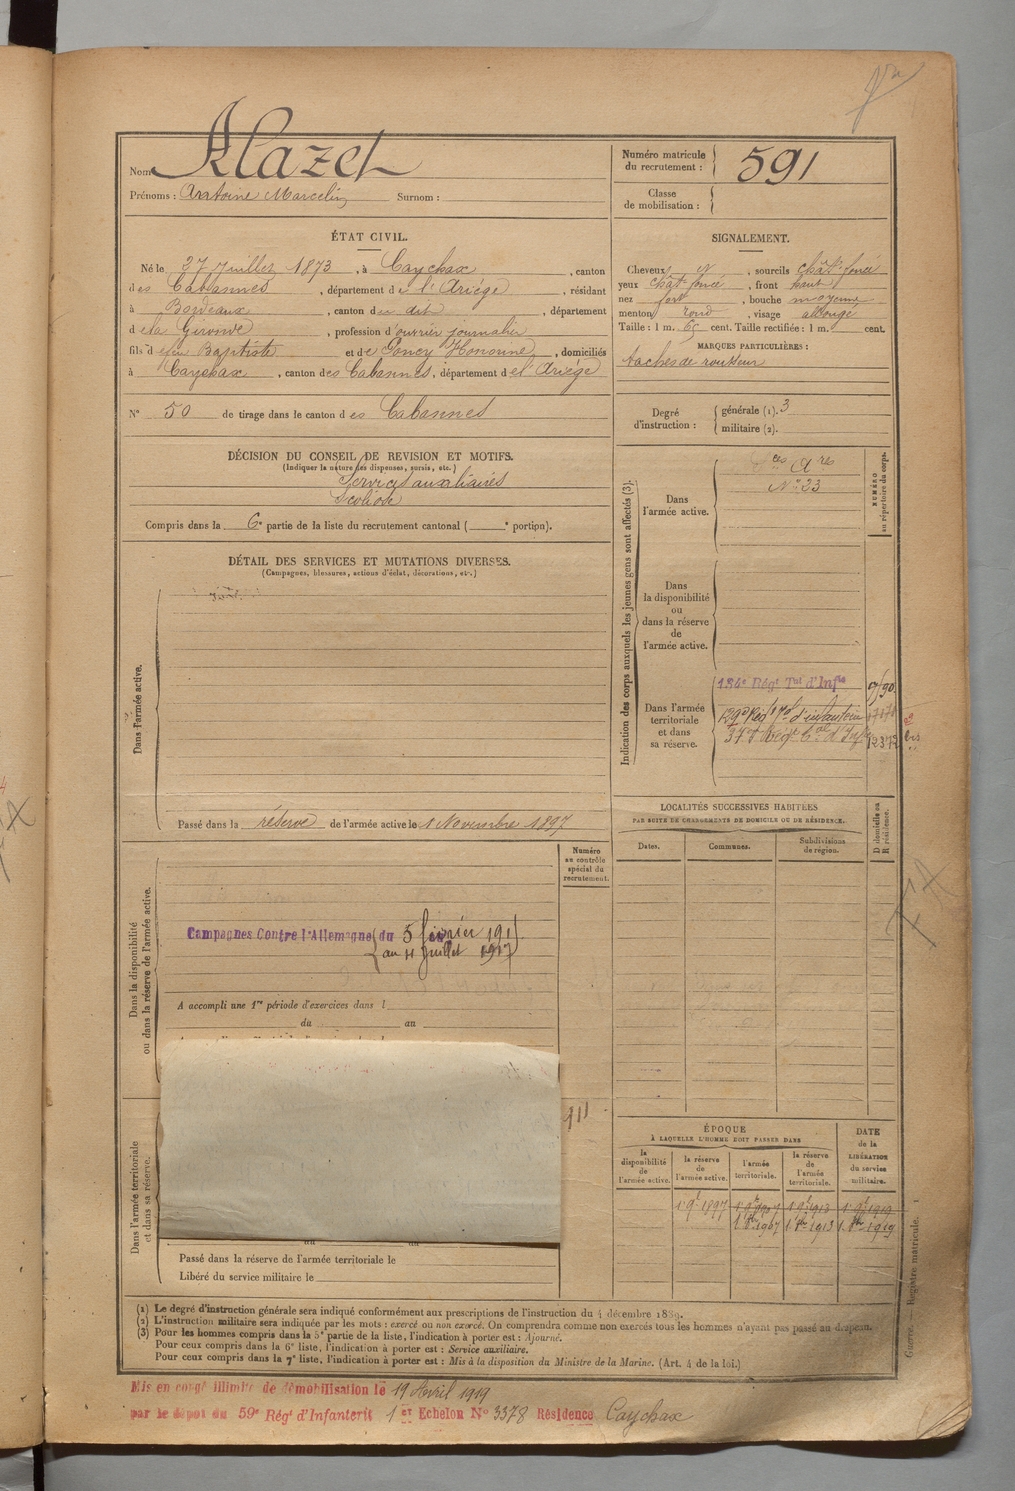 Nom Mazet
Prénoms : Antoine Marcelin Surnom :
Numéro matricule du recrutement : 591
Classe de mobilisation :
ÉTAT CIVIL.
Né le 27 Juillet 1873, à Caychax, canton
des Cabannes, département de l'Ariège, résidant
à Bordeaux, canton du dit, département
d e la Gironde, profession d'ouvrier journalier
fils de feu Baptiste et de Goncy Honorine, domiciliés
à Caychax, canton des Cabannes, département de l'Ariège
N° 50 de tirage dans le canton des Cabannes
SIGNALEMENT.
Cheveux N, sourcils chât. foncé
yeux chât. foncé, front haut
nez fort, bouche moyenne
menton rond, visage allongé
Taille : 1 m. 65 cent. Taille rectifiée : 1 m. cent.
MARQUES PARTICULIÈRES :
taches de rousseur
Degré d'instruction : générale (1). 3
militaire (2).
DÉCISION DU CONSEIL DE REVISION ET MOTIFS.
(Indiquer la nature des dispenses, sursis, etc.)
Services auxiliaires
Scoliose
Compris dans la 6e partie de la liste du recrutement cantonal ( e portion).
DÉTAIL DES SERVICES ET MUTATIONS DIVERSES.
(Campagnes, blessures, actions d'éclat, décorations, etc.)
Dans l'armée active.
Passé dans la réserve de l'armée active le 1 Novembre 1897
Indication des corps auxquels les jeunes gens sont affectés (3).
NUMÉRO au répertoire du corps.
Dans l'armée active.
Sces Aires
N° 23
Dans la disponibilité ou dans la réserve de l'armée active.
Dans l'armée territoriale et dans sa réserve.
134e Régt Tal d'Infie
129e Régt Tal d'infanterie
37e Régt Tal d'Infie
LOCALITÉS SUCCESSIVES HABITÉES
PAR SUITE DE CHANGEMENTS DE DOMICILE OU DE RÉSIDENCE.
D domicile ou R résidence.
Dates. Communes. Subdivisions de région.
Numéro au contrôle spécial du recrutement.
Dans la disponibilité ou dans la réserve de l'armée active.
Campagnes Contre l'Allemagne du 5 février 191
au 11 Juillet 1917
A accompli une 1re période d'exercices dans l
du au
911
Dans l'armée territoriale et dans sa réserve.
Passé dans la réserve de l'armée territoriale le
Libéré du service militaire le
ÉPOQUE
À LAQUELLE L'HOMME DOIT PASSER DANS
DATE de la LIBÉRATION du service militaire.
la disponibilité de l'armée active. la réserve de l'armée active. l'armée territoriale. la réserve de l'armée territoriale.
1 9bre 1897 1 9bre 1907 1 9bre 1913 1 9bre 1919
1 8bre 1907 1 8bre 1913 1 8bre 1919
(1) Le degré d'instruction générale sera indiqué conformément aux prescriptions de l'instruction du 4 décembre 1889.
(2) L'instruction militaire sera indiquée par les mots : exercé ou non exercé. On comprendra comme non exercés tous les hommes n'ayant pas passé au drapeau.
(3) Pour les hommes compris dans la 5e partie de la liste, l'indication à porter est : Ajourné.
Pour ceux compris dans la 6e liste, l'indication à porter est : Service auxiliaire.
Pour ceux compris dans la 7e liste, l'indication à porter est : Mis à la disposition du Ministre de la Marine. (Art. 4 de la loi.)
Guerre. — Registre matricule. 1
Mis en congé illimité de démobilisation le 19 Avril 1919
par le dépôt du 59e Régt d'Infanterie 1er Echelon N° 3378 Résidence Caychax